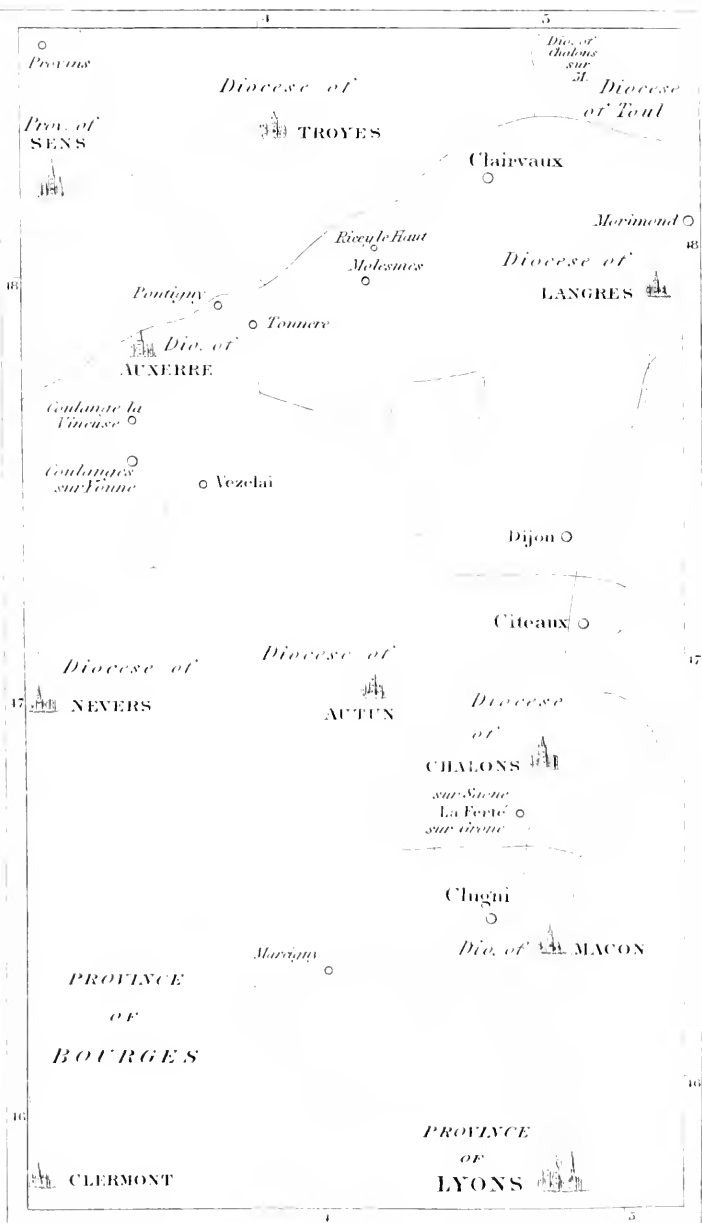 4
5
Provins
Dio. of
Chalons
sur
M.
Diocese of
TROYES
Diocese
of Toul
Prov. of
SENS
Clairvaux
Morimond
48
Ricey le Haut
Molesmes
Diocese of
LANGRES
48
Pontigny
Tonnere
Dio. of
AUXERRE
Coulange la
Vineuse
Coulanges
sur Yonne
Vezelai
Dijon
Citeaux
47
Diocese of
NEVERS
47
Diocese of
AUTUN
Diocese
of
CHALONS
sur Saone
La Ferté
sur Grone
Clugni
Dio. of MACON
Marcigny
PROVINCE
OF
BOURGES
46
46
PROVINCE
OF
LYONS
CLERMONT
4
5